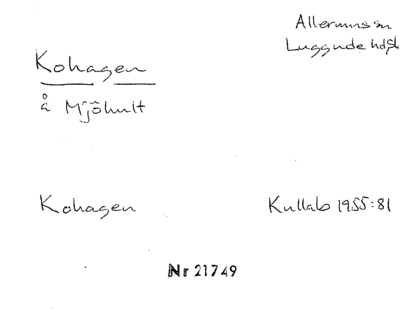 Allerums sn
Luggude hd, Sk
Kohagen
å Mjöhult
Kohagen
Kullab 1955:81
Nr 21749